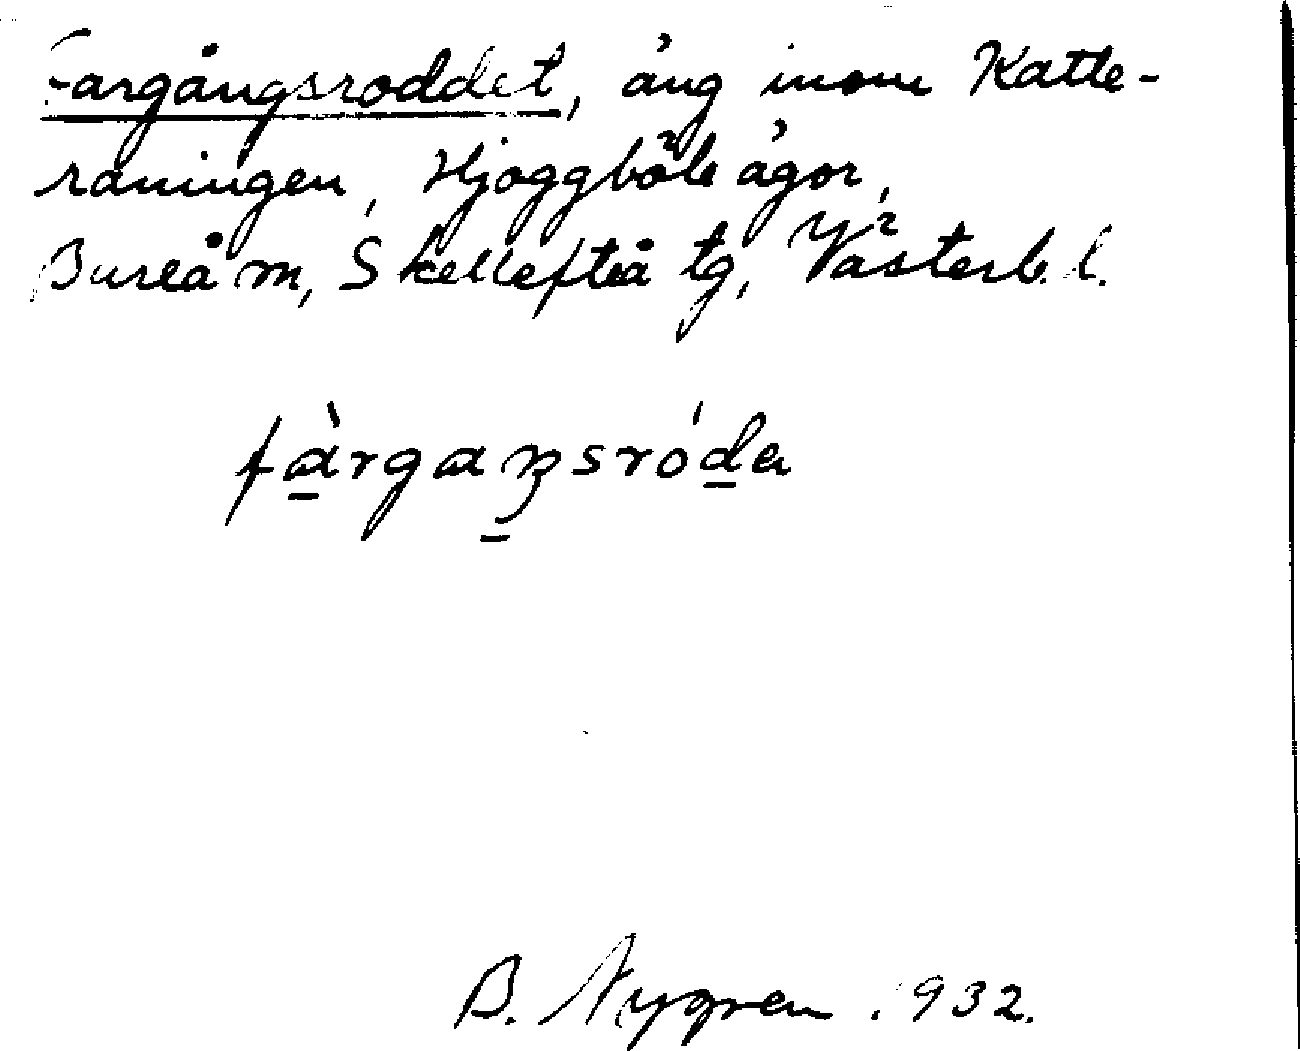 Fargångsroddet, äng inom Katte-
råningen, Hjoggböle ägor,
Bureå m, Skellefteå tg, Västerb. l.
fàrgaŋsróda
B. Nygren 1932.